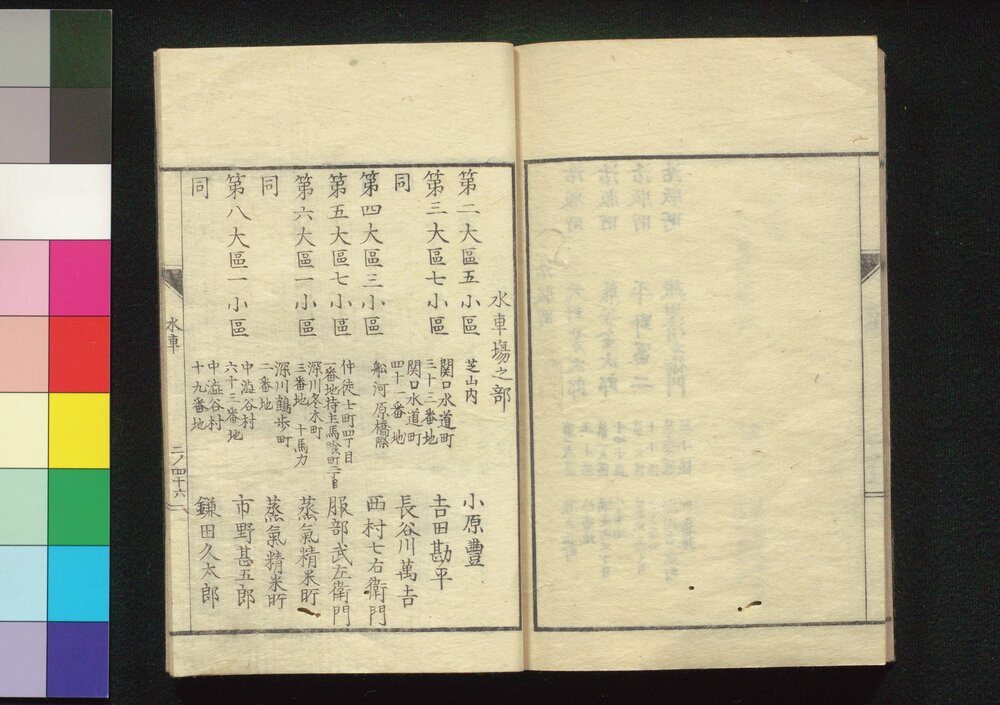 水車場之部
第二大區五小區 芝山内 小原豐
第三大區七小區 関口水道町三十三番地 吉田勘平
同 関口水道町四十一番地 長谷川萬吉
第四大區三小區 舩河原橋際 西村七右衛門
第五大區七小區 仲徒士町四丁目一番地持主馬喰町二丁目 服部武左衛門
第六大區一小區 深川冬木町三番地 十馬力 蒸氣精米所
同 深川鶴歩町二番地 蒸氣精米所
第八大區一小區 中澁谷村六十三番地 市野甚五郎
同 中澁谷村十九番地 鎌田久太郎
水車
二ノ四十六